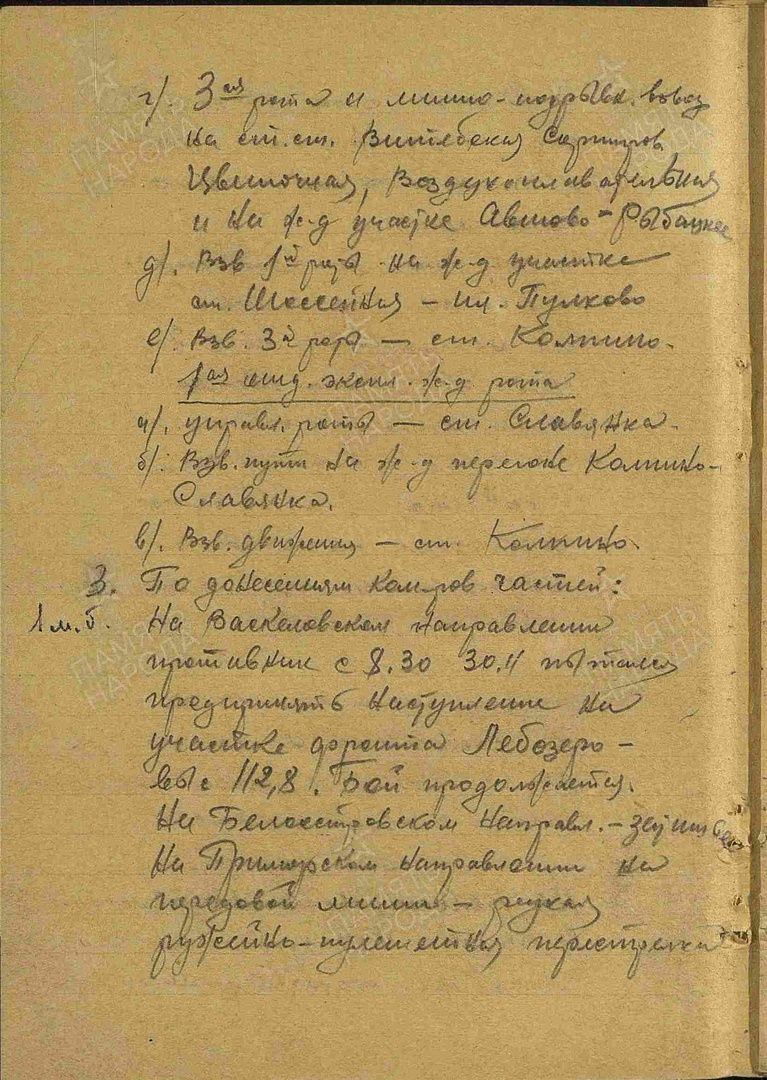 г/. 3ая рота и минно-подрывн. взвод
на ст.ст. Витебская Сортиров.
Цветочная, Воздухоплавательная
и на ж-д участке Автово-Рыбацкое
д/. Взв 1й роты на ж-д участке
ст. Шоссейная – пл. Пулково
е/. Взв. 3й роты – ст. Колпино.
1ая отд. экспл. ж-д рота
а/. управл. роты – ст. Славянка.
б/. Взв. пути на ж-д перегоне Колпино-
Славянка.
в/. Взв. движения – ст. Колпино.
3. По донесениям ком-ров частей:
1 м.б. На Васкеловском направлении
противник с 8.30 30.11 пытался
предпринять наступление на
участке фронта Лебозеро –
выс 112,8. Бой продолжается.
На Белоостровском направл. – затишье
На Приморском направлении на
передовой линии – редкая
ружейно-пулеметная перестрелка
ПАМЯТЬ НАРОДА